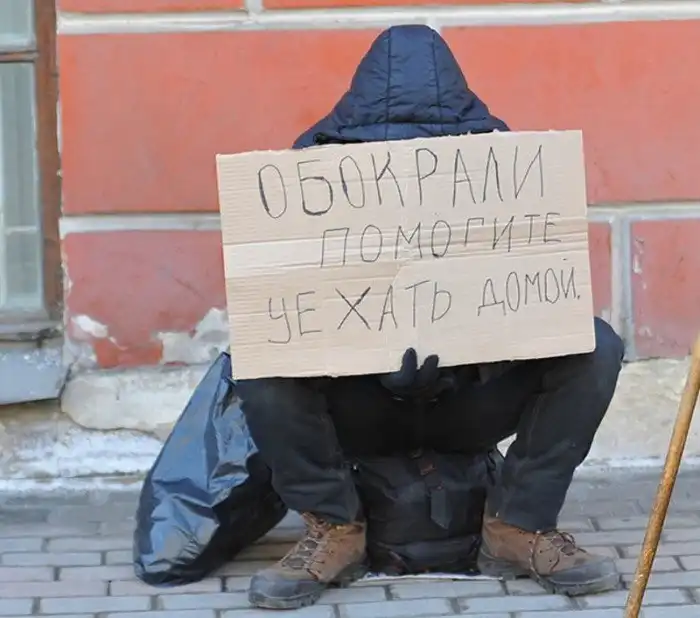 ОБОКРАЛИ
ПОМОГИТЕ
УЕХАТЬ ДОМОЙ.